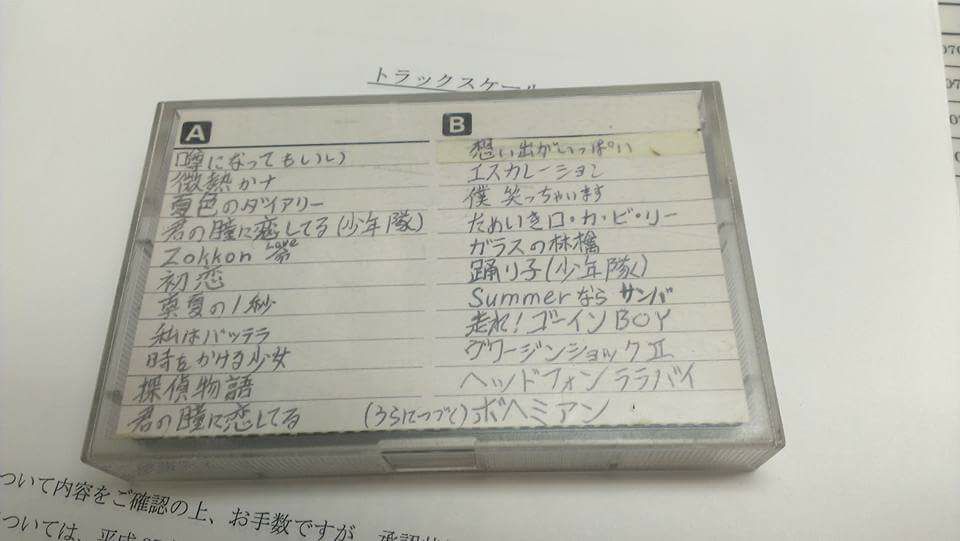 トラックスケール
A
噂になってもいい
微熱かナ
夏色のダイアリー
君の瞳に恋してる(少年隊)
Zokkon 命 Love
初恋
真夏の1秒
私はバッテラ
時をかける少女
探偵物語
君の瞳に恋してる
(うらにつづく)
B
想い出がいっぱい
エスカレーション
僕 笑っちゃいます
ためいきロ・カ・ビ・リー
ガラスの林檎
踊り子(少年隊)
Summerなら サンバ
走れ!ゴーインBOY
ヴァージンショックⅡ
ヘッドフォン ララバイ
ボヘミアン
ついて内容をご確認の上、お手数ですが、承認
ついては、平成